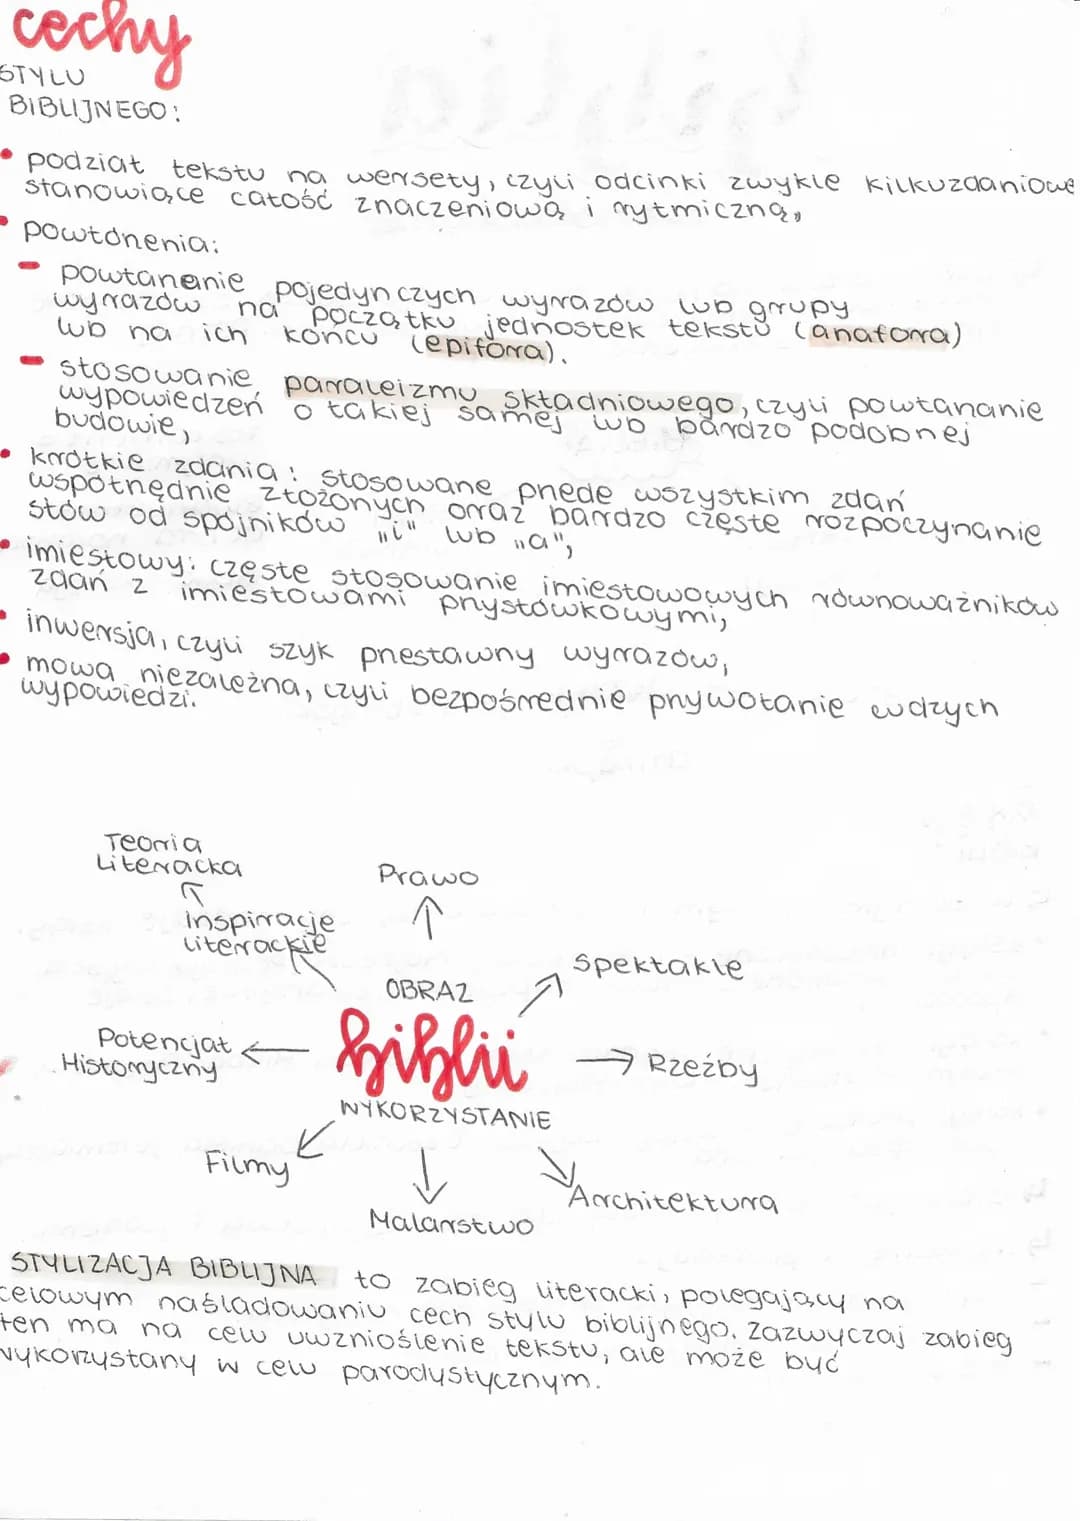 cechy
STYLU
BIBLIJNEGO:
• podział tekstu na wersety, czyli odcinki zwykle kilkuzdaniowe
stanowiące całość znaczeniową i rytmiczną,
• powtórzenia:
- powtarzanie pojedynczych wyrazów lub grupy
wyrazów na początku jednostek tekstu (anafora)
lub na ich końcu (epifora).
- stosowanie paraleizmu składniowego, czyli powtarzanie
wypowiedzeń o takiej samej lub bardzo podobnej
budowie,
• krótkie zdania: stosowane przede wszystkim zdań
współrzędnie złożonych oraz bardzo częste rozpoczynanie
słów od spójników „i" lub „a",
• imiesłowy: częste stosowanie imiesłowowych równoważników
zdań z imiesłowami przysłówkowymi,
• inwersja, czyli szyk przestawny wyrazów,
• mowa niezależna, czyli bezpośrednie przywołanie cudzych
wypowiedzi.
Teoria
Literacka
Prawo
Inspiracje
literackie
Spektakle
OBRAZ
Potencjał
Historyczny
biblii
Rzeźby
WYKORZYSTANIE
Filmy
Malarstwo
Architektura
STYLIZACJA BIBLIJNA to zabieg literacki, polegający na
celowym naśladowaniu cech stylu biblijnego. Zazwyczaj zabieg
ten ma na celu uwznioślenie tekstu, ale może być
wykorzystany w celu parodystycznym.